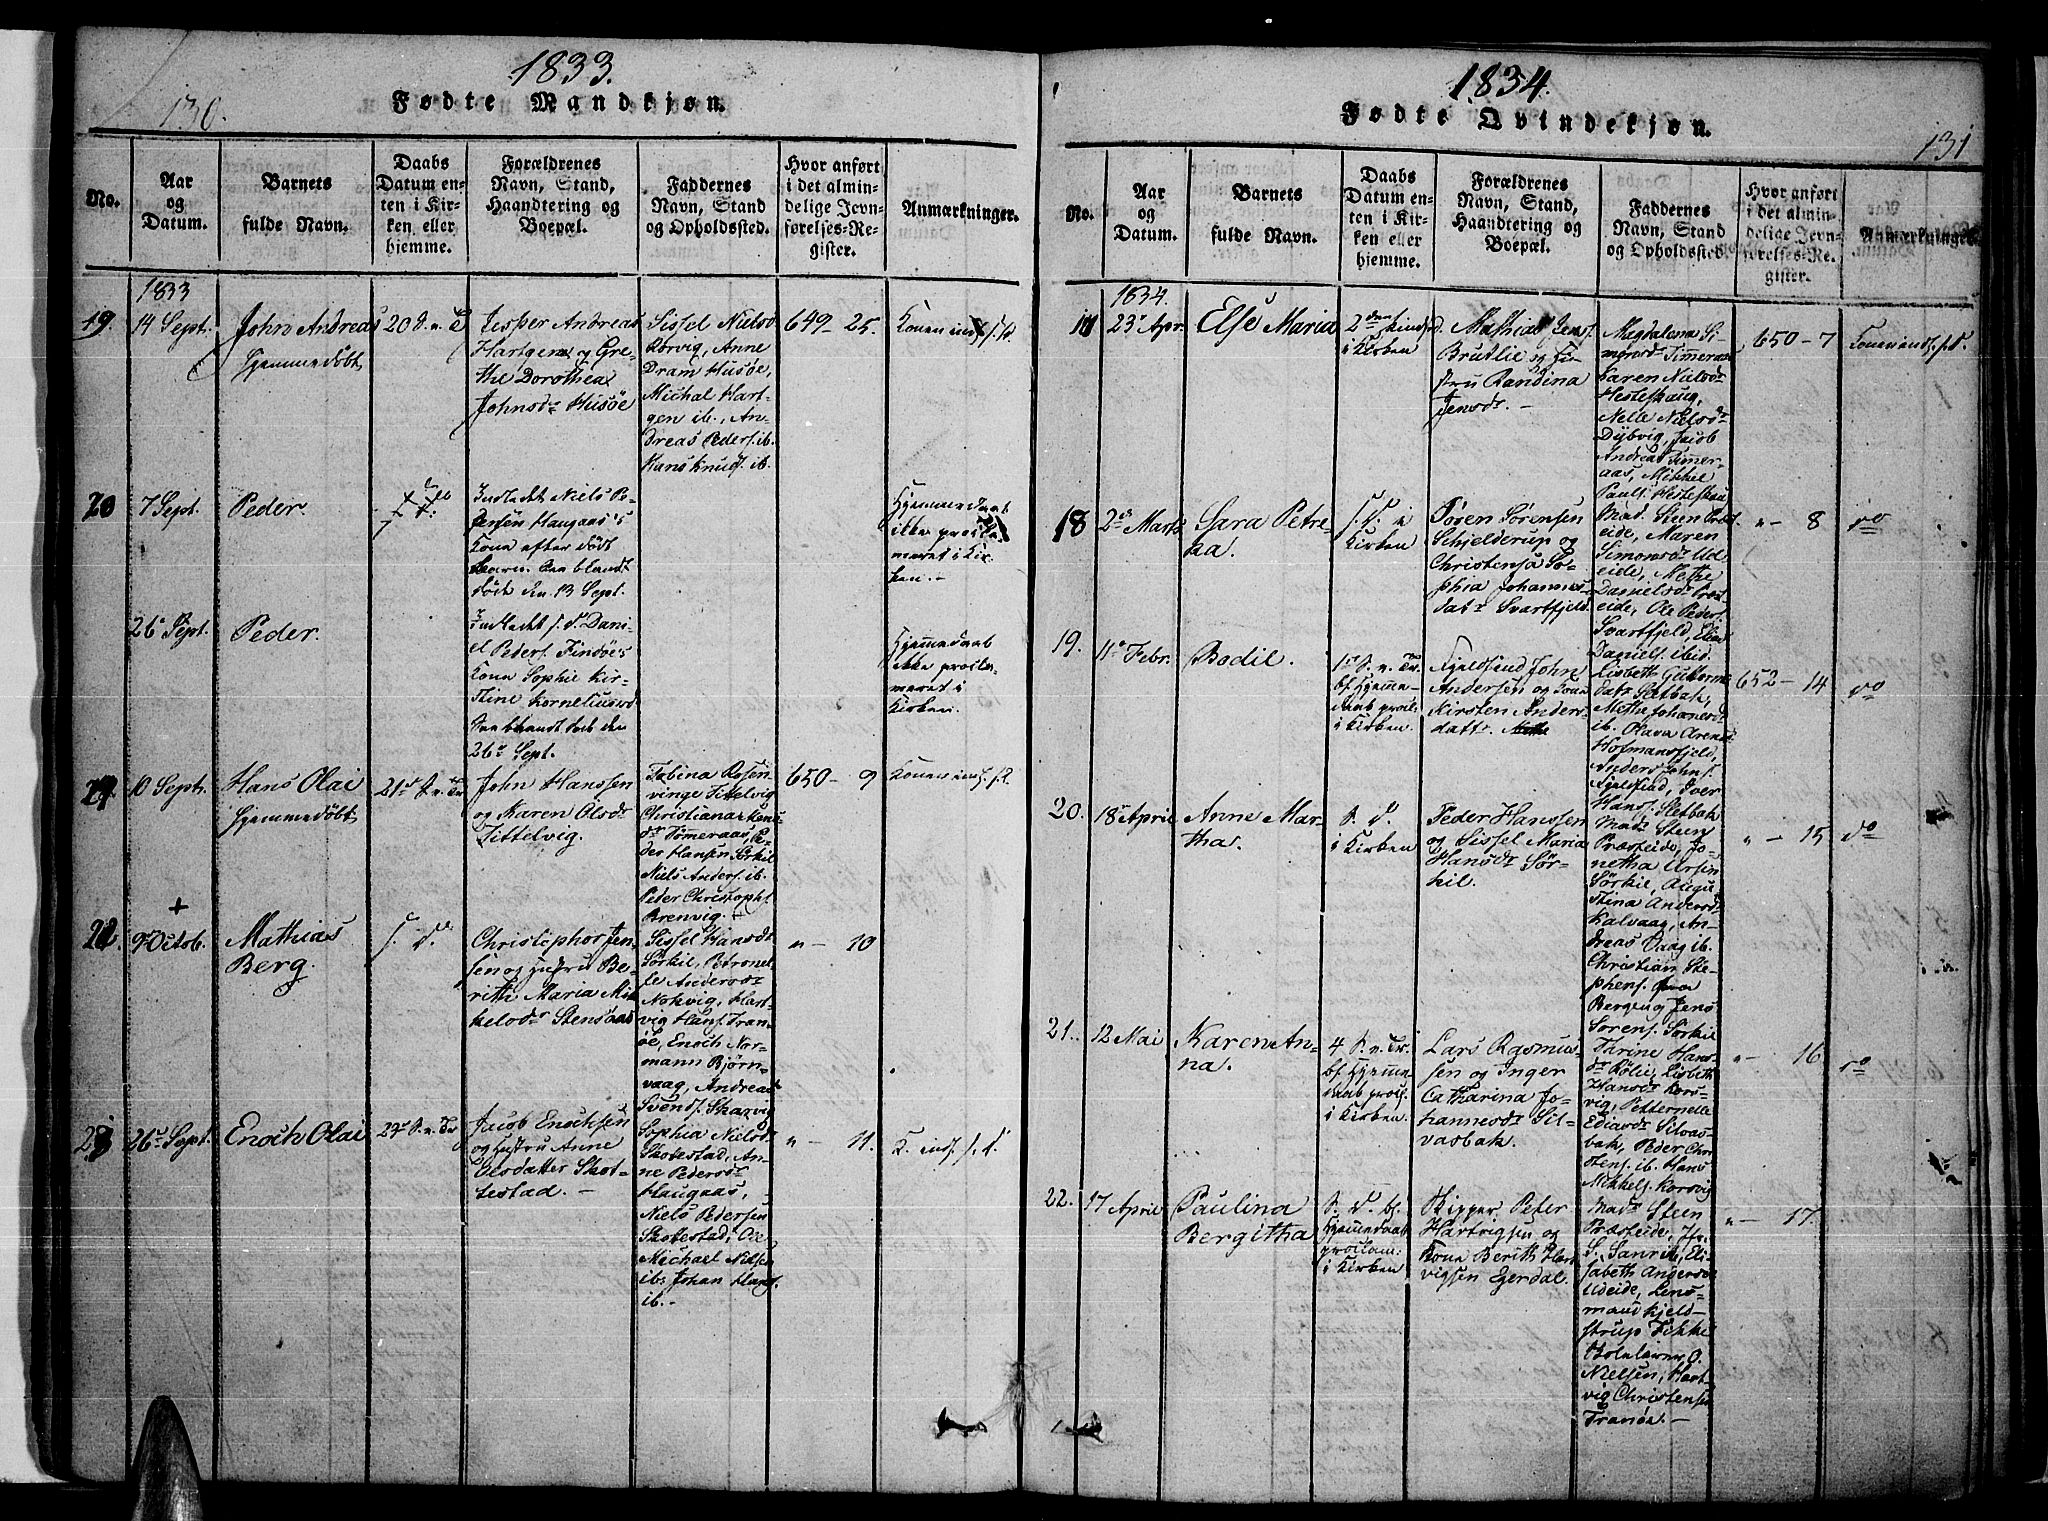 130.
1833.
Fødte Mandkjøn.
No.
Aar
og
Datum.
Barnets
fulde Navn.
Daabs
Datum en-
ten i Kir-
ken eller
hjemme.
Forældrenes
Navn, Stand,
Haandtering og
Boepæl.
Faddernes
Navn, Stand
og Opholdssted.
Hvor anført
i det almin-
delige Jevn-
førelses-Re-
gister.
Anmærkninger.
1833
19.
14 Sept.
John Andreas
Hjemmedøbt
20 S. v. T
Jesper Andreas
Hartgen og Gre-
the Dorothea
Johnsdr Husöe
Sissel Nielsd
Korvig, Anne
Dram Husöe,
Michal Hart-
gen ib., An-
dreas Peders. ib.
Hans Knuds. ib.
649 - 25.
Konen inds. s. D.
20
7 Sept.
Peder
Indledet Niels Pe-
dersen Haugaas's
Kone efter födt
Barn. Paa blandt
døde den 13 Sept.
Hjemmedaab
ikke procla-
meret i Kir-
ken. -
26 Sept.
Peder.
Indledet s. D. Dani-
el Peders. Findöe's
Kona Sophie Kir-
stine Korneliusd
26 Sept.
Hjemmedaab
ikke procla-
meret i
Kirken.
21
10 Sept.
Hans Olai
Hjemmedøbt
21 S. v. Tr
John Hanssen
og Karen Olsdr
Tittelvig.
Tabina Rosen-
vinge Tittelvig
Christiana
dr Tømmeraas, Pe-
der Hansen Sørkil
Niels Anders. ib.
Peder Christoph.
Brenvig.
650 - 9
Konen inds. s. D.
+
22.
9 Octob.
Mathias
Berg.
s. D.
Christopher Jen-
sen og Hustru Be-
rith Maria Mik-
kelsdr Stensaas
Sissel Hansdr
Sørkil, Petronel-
le Andersdr
Nohvig, Hart-
vig Hans. Tran-
öe, Enoch Nor-
mann Bjørn-
vaag, Andreas
Svends. Skarvig
" - 10
23
26 Sept.
Enoch Olai
27 S. v. Tr
Jacob Enochsen
og Hustru Anne
Olsdatter Skot-
testad. -
Sophia Nielsd
Skotestad, An-
ne Pedersdr
Haugaas,
Niels Pedersen
Skotestad, Ole
Michael Nilsen
ib. Johan Hans.
ib. -
" - 11.
K. inds. s. D.
1834.
131
Fødte Qvindekjøn.
No.
Aar
og
Datum.
Barnets
fulde Navn.
Daabs
Datum en-
ten i Kir-
ken eller
hjemme.
Forældrenes
Navn, Stand,
Haandtering og
Boepæl.
Faddernes
Navn, Stand
og Opholdssted.
Hvor anført
i det almin-
delige Jevn-
førelses-Re-
gister.
Anmærkninger.
1834.
23 Apr.
Else Maria
2den Pindsed.
i Kirken
Mathias Jens.
Brutlie og Hu-
stru Randina
Jensdr. -
Magdalena Si-
monsdr Timeraas
Karen Nielsdr
Hesteskaug,
Nelle Nielsdr
Dybvig, Jacob
Andreas Timer-
aas, Mikkel
Pauls. Hesteskau
650 - 7
Konen inds. s. D.
18
2 Marts
Sara Petre-
na.
s. D. i
Kirken
Søren Sørensen
Schjelderup og
Christensa So-
phia Johannes
datr Svartfjeld.
Mad. Steen Præst-
eide, Maren
Simonsdr Ud-
eide, Methe
Danielsdr Præst-
eide, Ole Peders.
Svartfjeld, Elias
Daniels. ibid.
" - 8
do
19.
11 Febr.
Bodil.
1 S. v. Tr.
bf. Hjemme-
daab procl.
i Kirken.
John
Andersen og Kone
Kirsten Anders-
datr.
Lisbeth Guttorms
datr Sletbak,
Methe Johanesdr
ib. Olava Arensd
Hofmansfjeld,
Anders Johns.
Iver
Hans. Sletbak
652 - 14
do
20.
18 April
Anne Mar-
tha.
S. D.
i Kirken
Peder Hanssen
og Sissel Maria
Hansdr Sør-
kil.
Madr Steen
Præsteide, Jo-
netha Arsin
Sørkil, Augu-
stina Andersd
Kalvaag, An-
dreas Vaag ib.
Christian Ste-
phens. fra
Bergen og Jens
Sørens. Sørkil
" - 15
do
21.
12 Mai
Karen An-
na.
4 S. v. Tr.
bf. Hjemme
daab procl.
i Kirken
Lars Rasmus-
sen og Inger
Catharina Jo-
hannesdr Sil-
vasbak.
Thrine Hans-
dr Rölie, Lisbeth
Hansdr Kors-
vig, Petternelle
Ediardsdr Silvas-
bak, Peder Chri-
stens. ib. Hans
Mikkels. Korsvig
" - 16
do
22.
17 April
Paulina
Bergitha
S. D. bf.
Hjemmedaab
proclam:
i Kirken
Skipper Peter
Hartvigsen og
Kone Berith Har
vigsen Egerdal.
Madr Steen
Præsteide, Jfr.
S. Sanrib, Eli-
sabeth Andersdr
Udeide, Lens-
mand Kjeld-
strup Tikkie
O.
Nielsen, Hart-
vig Christensen
Tranöe. -
" - 17.